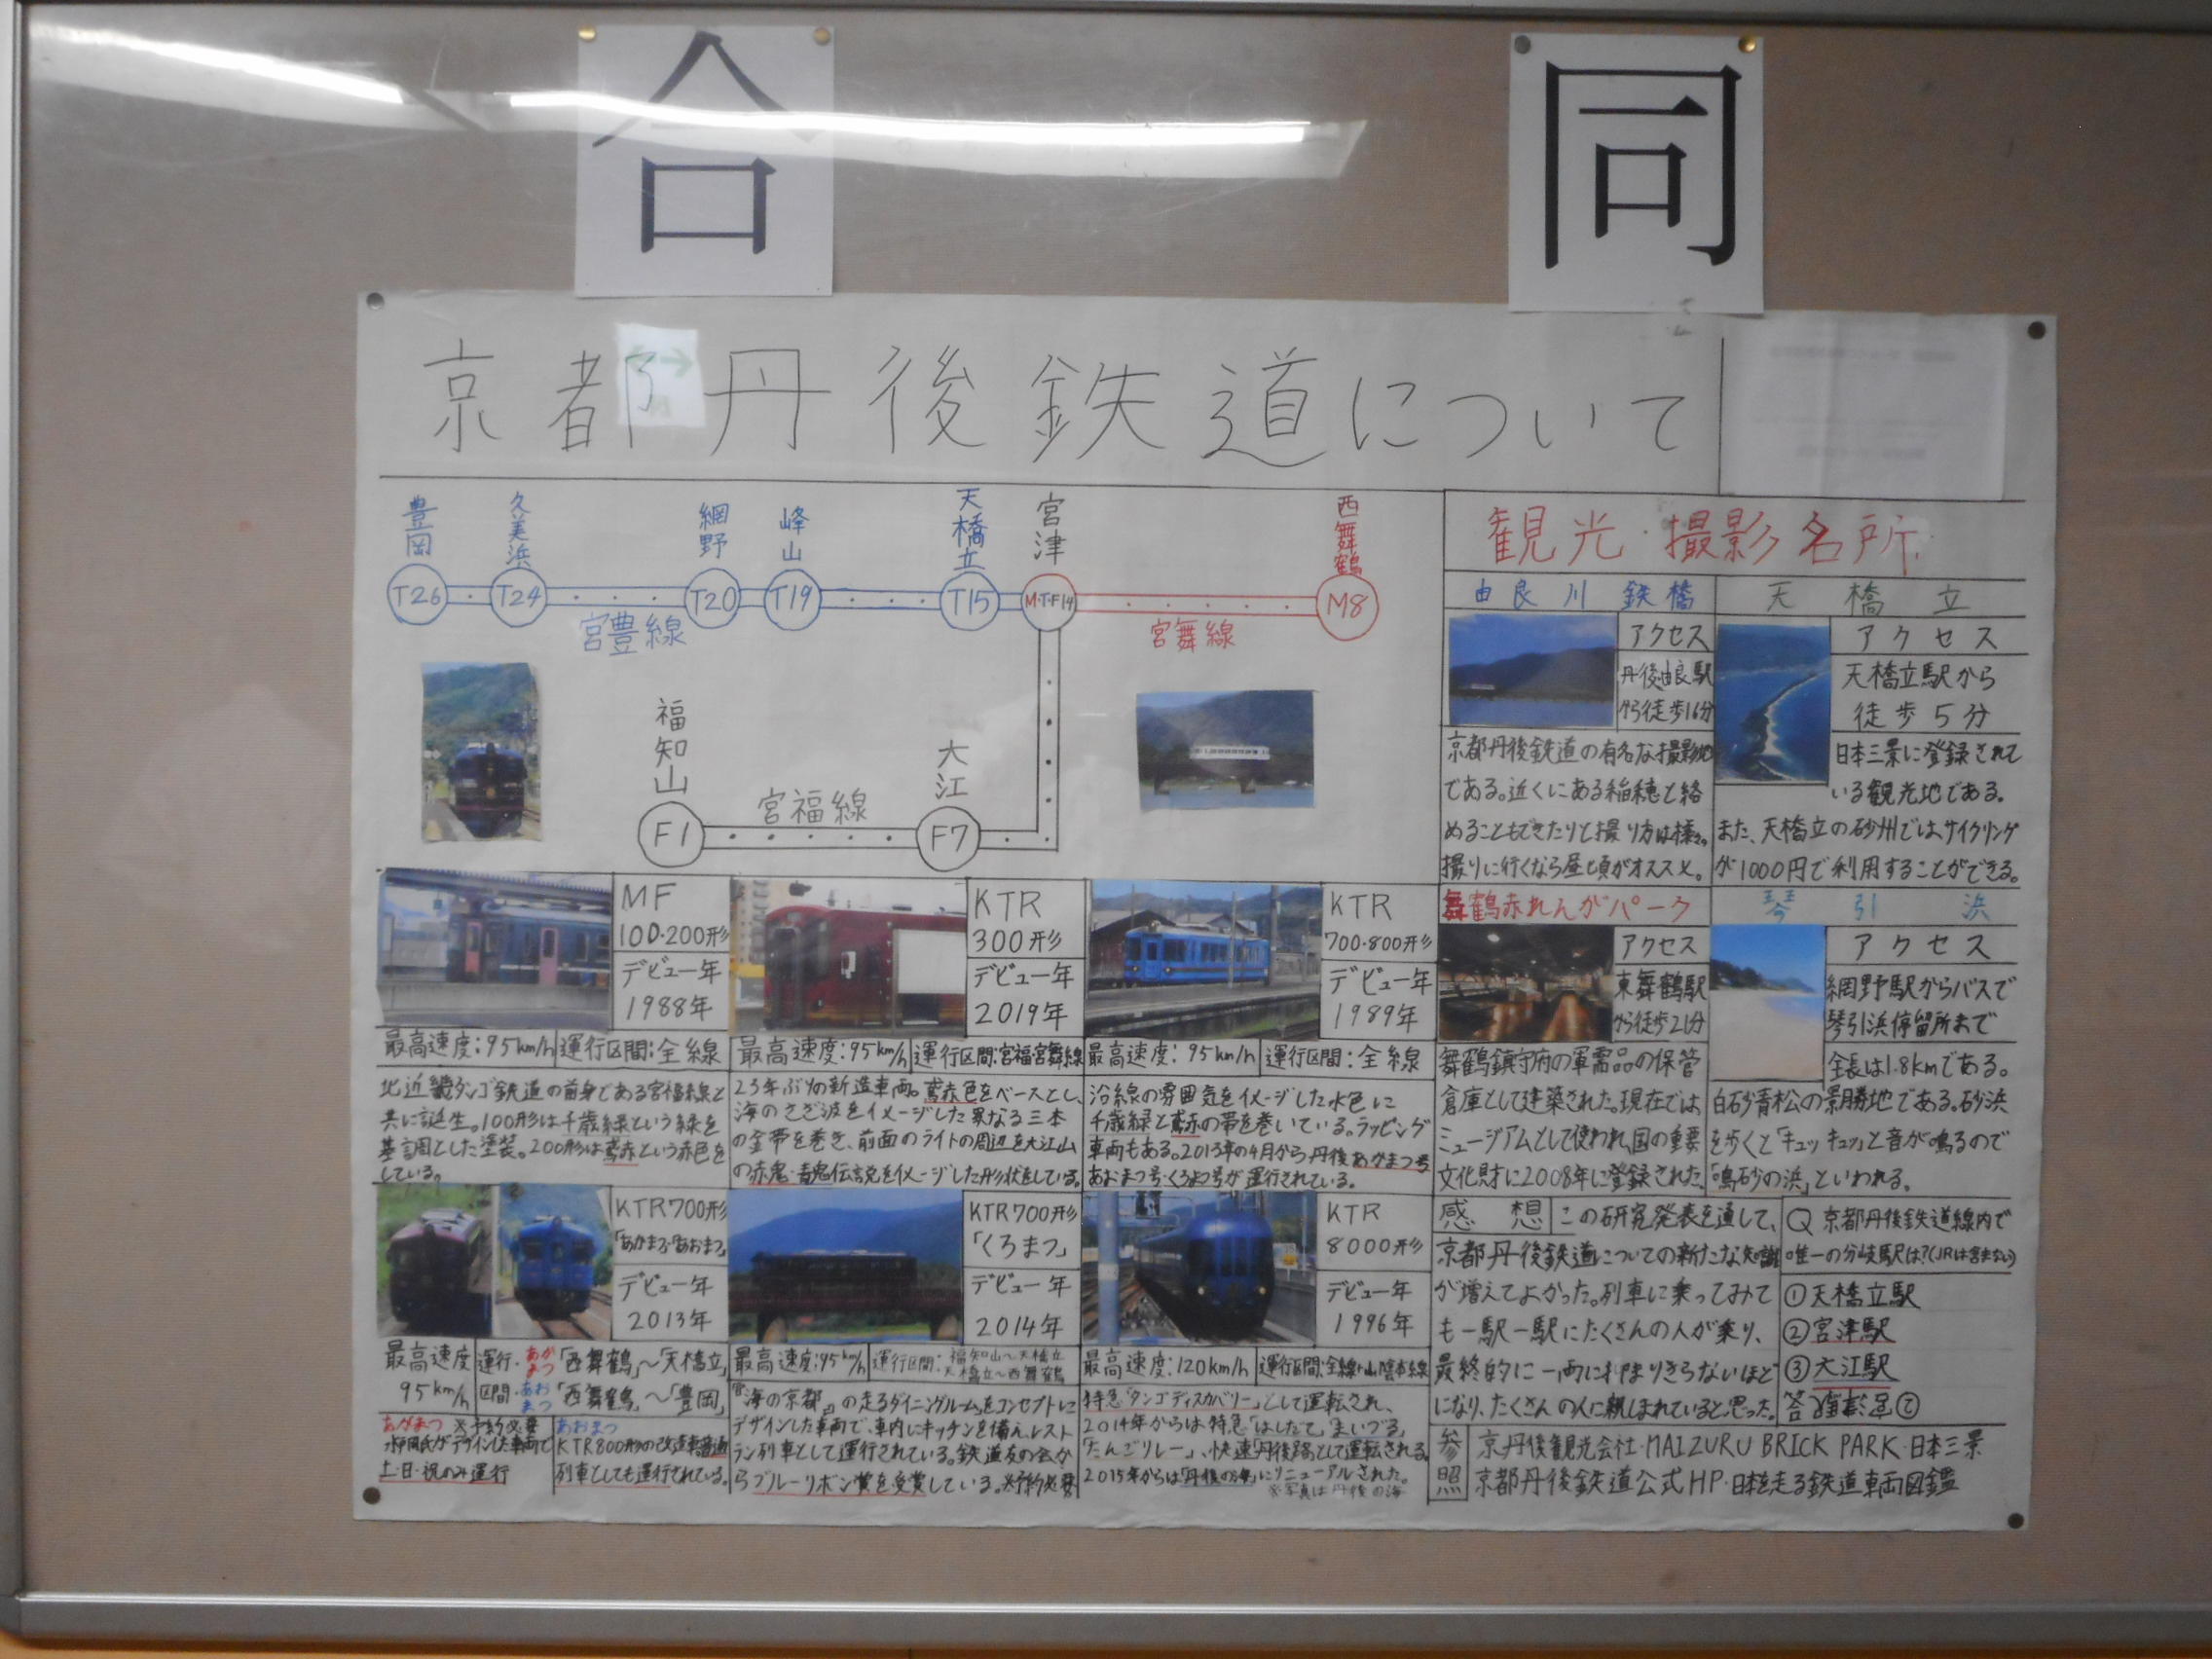 合
同
京都丹後鉄道について
豊岡
久美浜
網野
峰山
天橋立
宮津
西舞鶴
T26
T24
T20
T19
T15
M・T・F14
M8
宮豊線
宮舞線
福知山
大江
F1
宮福線
F7
MF
100・200形
デビュー年
1988年
最高速度:95km/h
運行区間:全線
北近畿タンゴ鉄道の前身である宮福線と
共に誕生。100形は千歳緑という緑を
基調とした塗装。200形は鳶赤という赤色を
している。
KTR
300形
デビュー年
2019年
最高速度:95km/h
運行区間:宮福・宮舞線
23年ぶりの新造車両。鳶赤色をベースとし、
海のさざ波をイメージした異なる三本
の金帯を巻き、前面のライトの周辺を大江山
の赤鬼・青鬼伝説をイメージした形状をしている。
KTR
700・800形
デビュー年
1989年
最高速度: 95km/h
運行区間:全線
沿線の雰囲気をイメージした水色に
千歳緑と鳶赤の帯を巻いている。ラッピング
車両もある。2013年の4月から丹後あかまつ号
あおまつ号・くろまつ号が運行されている。
KTR700形
「あかまつ・あおまつ」
デビュー年
2013年
最高速度
95km/h
運行区間
・あかまつ「西舞鶴」~「天橋立」
・あおまつ「西舞鶴」~「豊岡」
あかまつ ※予約必要
水戸岡氏がデザインした車両で
土・日・祝のみ運行
あおまつ
KTR800形の改造車普通
列車としても運行されている。
KTR700形
「くろまつ」
デビュー年
2014年
最高速度:95km/h
運行区間:福知山~天橋立
天橋立~西舞鶴
『海の京都』の走るダイニングルームをコンセプトに
デザインした車両で、車内にキッチンを備えレスト
ラン列車として運行されている。鉄道友の会か
らブルーリボン賞を受賞している。※予約必要
KTR
8000形
デビュー年
1996年
最高速度:120km/h
運行区間:全線・山陰本線
特急「タンゴディスカバリー」として運転され、
2014年からは特急「はしだて」「まいづる」
「たんごリレー」、快速「丹後路」として運転される。
2015年からは「丹後の海」にリニューアルされた。
※写真は丹後の海
観光・撮影名所
由良川鉄橋
アクセス
丹後由良駅
から徒歩16分
京都丹後鉄道の有名な撮影地
である。近くにある稲穂と絡
めることもできたりと撮り方は様々。
撮りに行くなら昼頃がオススメ。
天橋立
アクセス
天橋立駅から
徒歩5分
日本三景に登録されて
いる観光地である。
また、天橋立の砂州ではサイクリング
が1000円で利用することができる。
舞鶴赤れんがパーク
アクセス
東舞鶴駅
から徒歩21分
舞鶴鎮守府の軍需品の保管
倉庫として建築された。現在では
ミュージアムとして使われ、国の重要
文化財に2008年に登録された。
琴引浜
アクセス
網野駅からバスで
琴引浜停留所まで
全長は1.8kmである。
白石砂青松の景勝地である。砂浜
を歩くと「キュッキュッ」と音が鳴るので
「鳴砂の浜」といわれる。
感想
この研究発表を通して、
京都丹後鉄道についての新たな知識
が増えてよかった。列車に乗ってみて
も一駅一駅にたくさんの人が乗り、
最終的に一両に収まりきらないほど
になり、たくさんの人に親しまれていると思った。
Q 京都丹後鉄道線内で
唯一の分岐駅は?(JRは含まない)
①天橋立駅
②宮津駅
③大江駅
答
②
参照
京丹後観光会社・MAIZURU BRICK PARK・日本三景
京都丹後鉄道公式HP・日本を走る鉄道車両図鑑